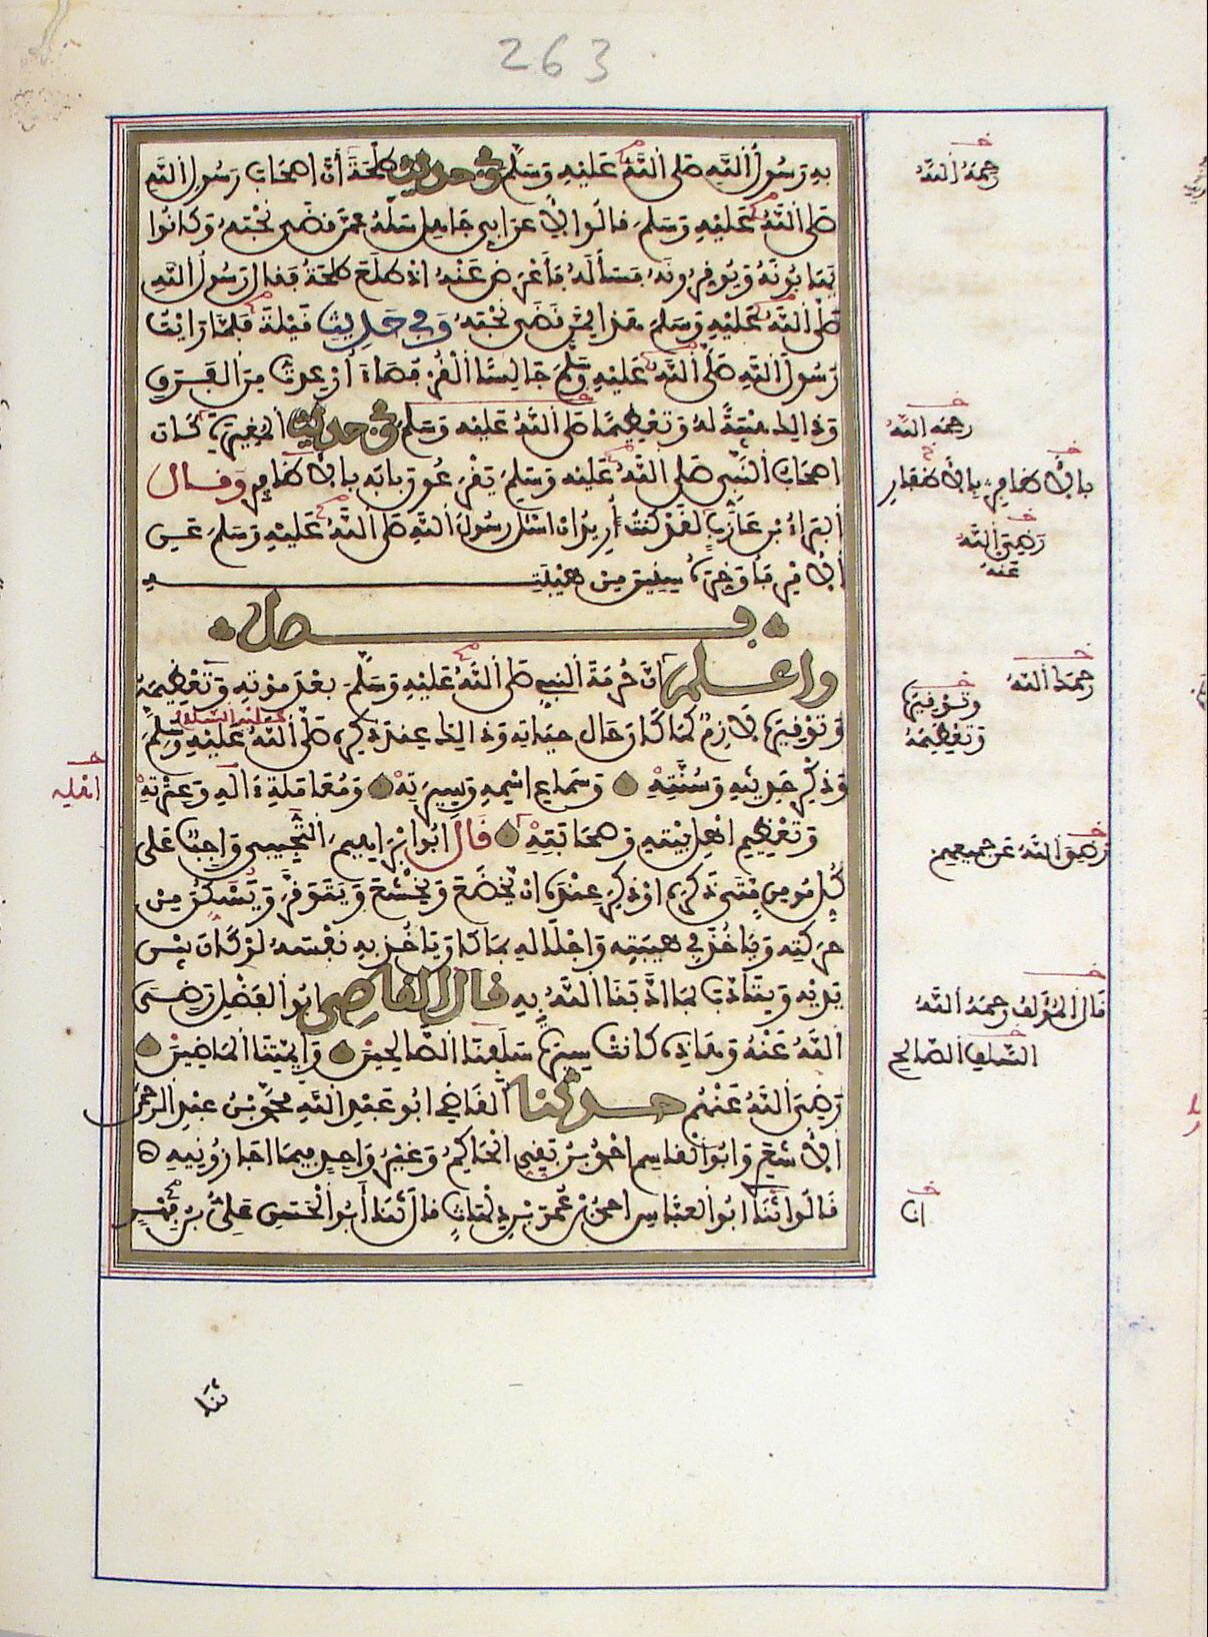 263
به رسول الله صلى الله عليه وسلم وفي حديث طلحة أن أصحاب رسول الله
صلى الله عليه وسلم قالوا لأعرابي جاهل سله عمن قضى نحبه وكانوا
يهابونه ويوقرونه فسأله فأعرض عنه اذ طلع طلحة فقال رسول الله
صلى الله عليه وسلم هذا ممن قضى نحبه وفي حديث قيلة فلما رأيت
رسول الله صلى الله عليه وسلم جالسا القرفصاء أرعدت من الفرق
وذلك هيبة له وتعظيما صلى الله عليه وسلم وفي حديث المغيرة كان
أصحاب النبي صلى الله عليه وسلم يقرعون بابه بالأظافر وقال
البراء بن عازب لقد كنت أريد ان اسئل رسول الله صلى الله عليه وسلم عن
الأمر فأؤخره سنين من هيبته
فصل
واعلم أن حرمة النبي صلى الله عليه وسلم بعد موته وتعظيمه
وتوقيره لازم كما كان حال حياته وذلك عند ذكره صلى الله عليه وسلم
وذكر حديثه وسنته وسماع اسمه وسيرته ومعاملة ءاله وعترته
وتعظيم اهل بيته وصحابته قال ابو إبراهيم التجيبي واجب على
كل مومن متى ذكره او ذكر عنده ان يخضع ويخشع ويتوقر ويسكن من
حركته وياخذ في هيبته واجلاله بما كان ياخذ به نفسه لو كان بين
يديه ويتادب بما ادبنا الله به قال القاضي ابو الفضل رضي
الله عنه وهاذه كانت سيرة سلفنا الصالحين وأيمتنا الماضين
رضي الله عنهم حدثنا القاضي ابو عبد الله محمد بن عبد الرحمن
الأشعري وابو القاسم احمد بن بقي الحاكم وغير واحد فيما اجازونيه
قالوا ثنا ابو العباس احمد بن عمر بن دلهاث قال ثنا أبو الحسن علي بن فهر
رحمه الله
رحمه الله
بالأظافر بالأظفار
رضي الله
عنه
رحمه الله
وتوقيره
وتعظيمه
عليه السلام
اهله
رضي الله عن جميعهم
قال المؤلف رحمه الله
السلف الصالح
انا
ثنا